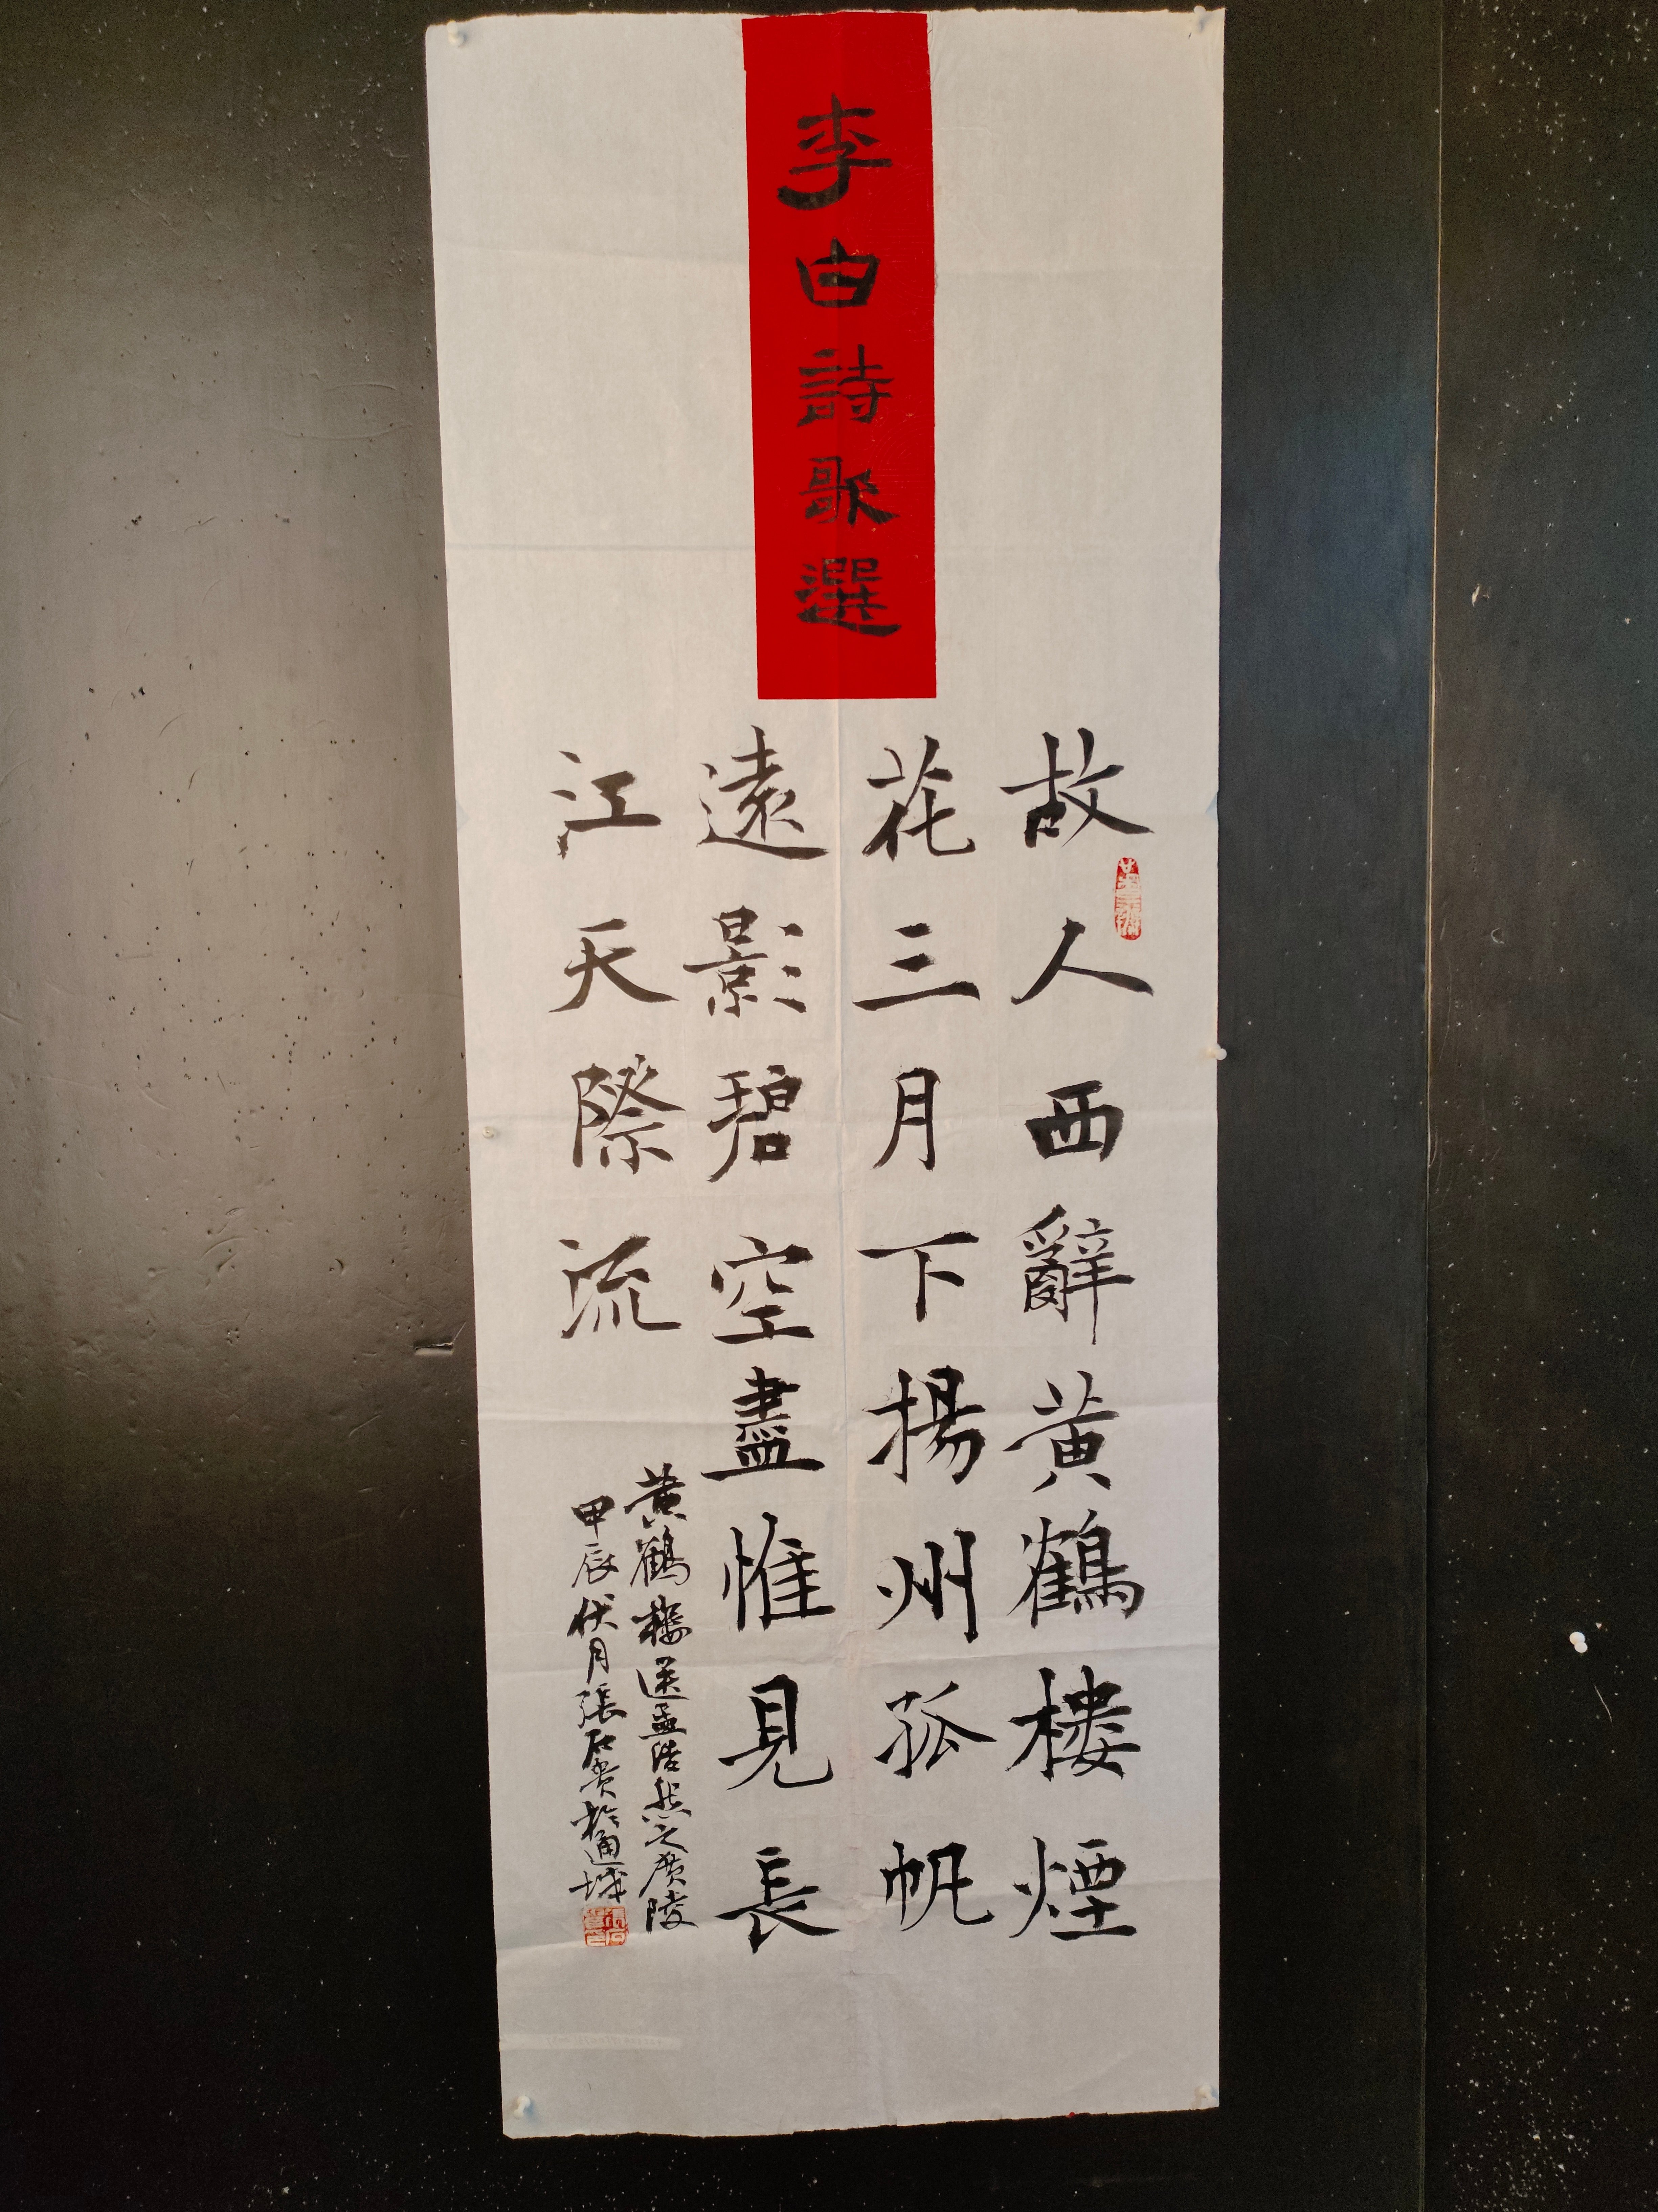 李白詩歌選
故人西辭黃鶴樓煙
花三月下揚州孤帆
遠影碧空盡惟見長
江天際流
黃鶴樓送孟浩然之廣陵
甲辰伏月張石貴於通城